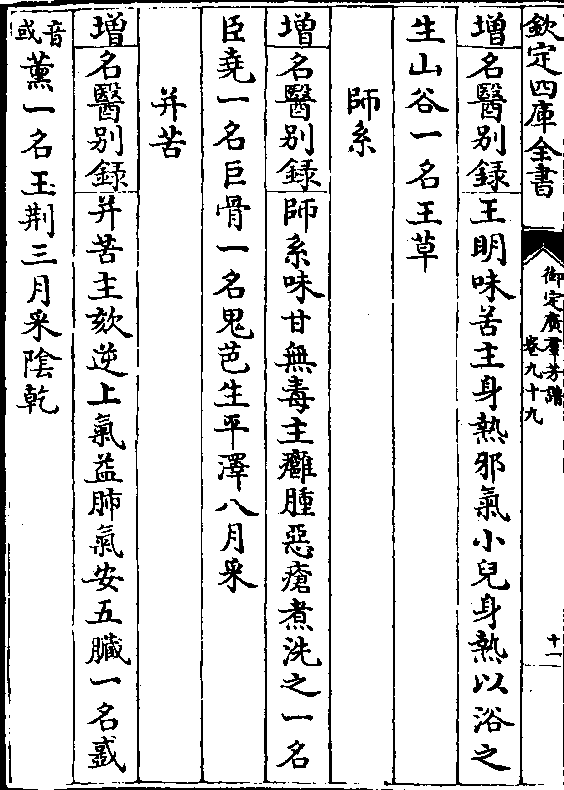 欽定四庫全書
御定廣羣芳譜
卷九十九
十一
增名醫别錄王明味苦主身熱邪氣小兒身熱以浴之
生山谷一名王草
師系
增名醫别錄師系味甘無毒主癰腫惡瘡煮洗之一名
臣堯一名巨骨一名鬼芭生平澤八月采
并苦
增名醫别錄并苦主欬逆上氣益肺氣安五臟一名蜮
音或
薰一名玉荆三月采陰乾